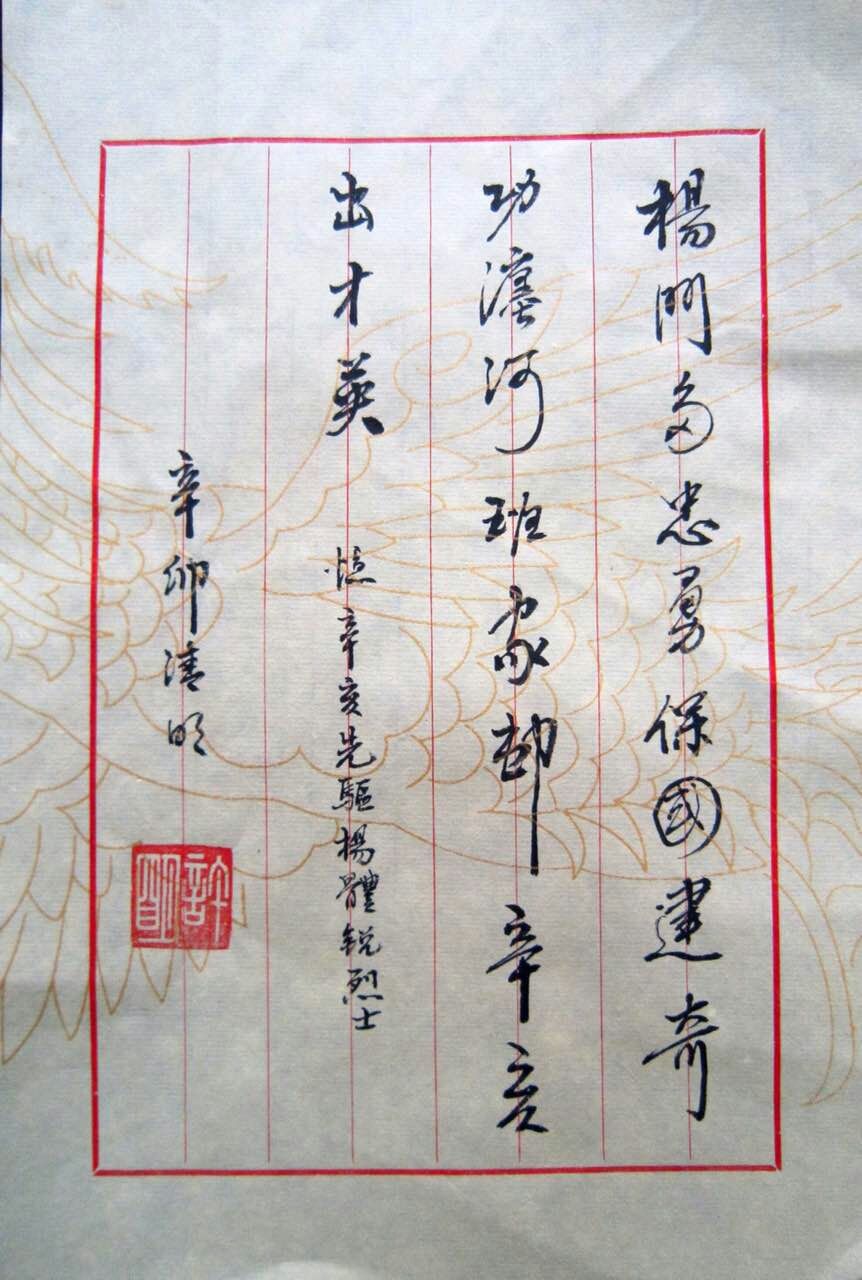 楊門多忠勇保國建奇
功瀍河班家邨辛亥
出才英 憶辛亥先驅楊體銳烈士
辛卯清明
許